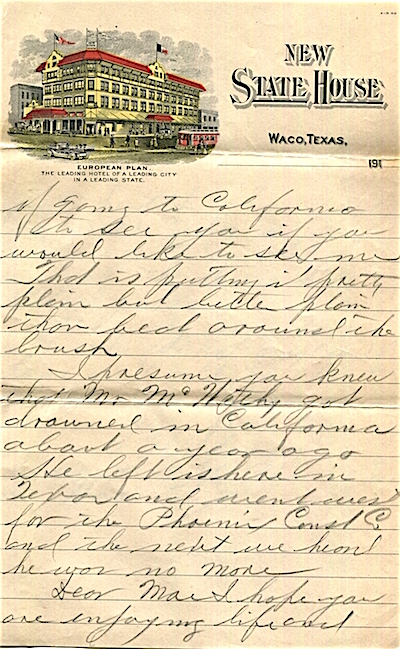 NEW
STATE HOUSE
WACO, TEXAS,
191
EUROPEAN PLAN.
THE LEADING HOTEL OF A LEADING CITY
IN A LEADING STATE.
of going to California
to see you if you
would like to see me
That is putting it pretty
plain but better plain
than beat around the
brush,
I presume you knew
that Mr Mc got
drowned in California
about a year ago
He left is here in
Texas and went west
for the Phoenix Const C.
and the next we heard
he was no more
Dear Mae I hope you
are enjoying life and